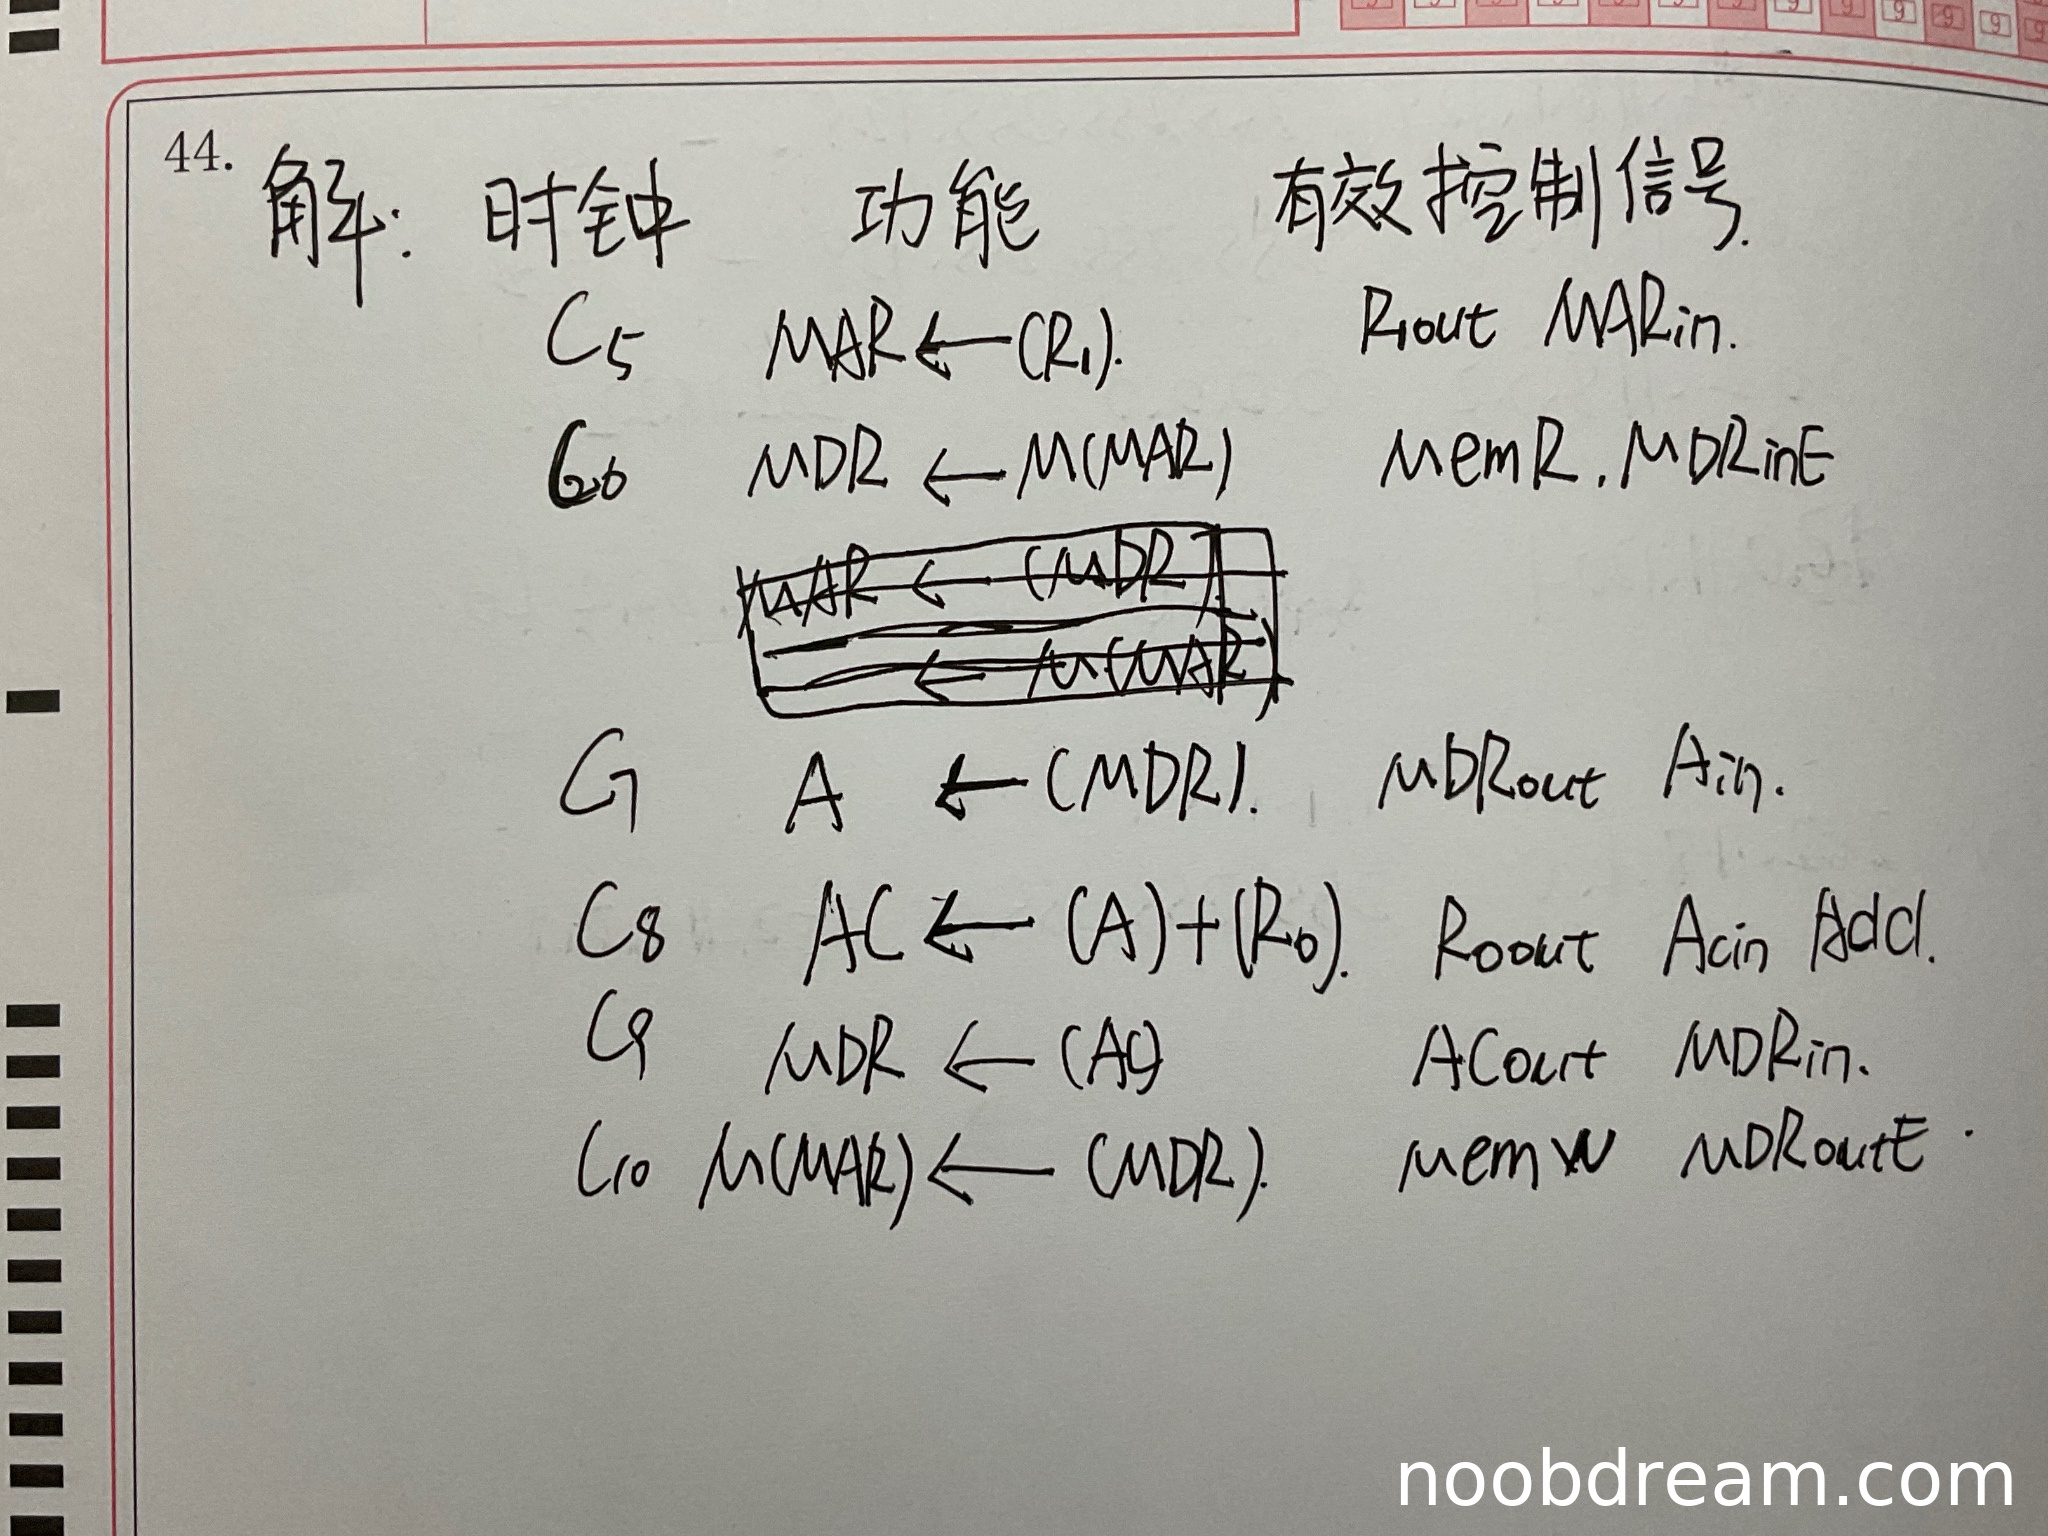 44. 解: 时钟 功能 有效控制信号.
C5 MAR ← (R1). R1out MARin.
C6 MDR ← M(MAR) MemR. MDRinE
MAR ← (MDR)
← M(MAR)
C7 A ← (MDR). MDRout Ain.
C8 AC ← (A)+(R0). R0out Acin Add.
C9 MDR ← (AC) ACout MDRin.
C10 M(MAR) ← (MDR). MemW MDRoutE.
noobdream.com